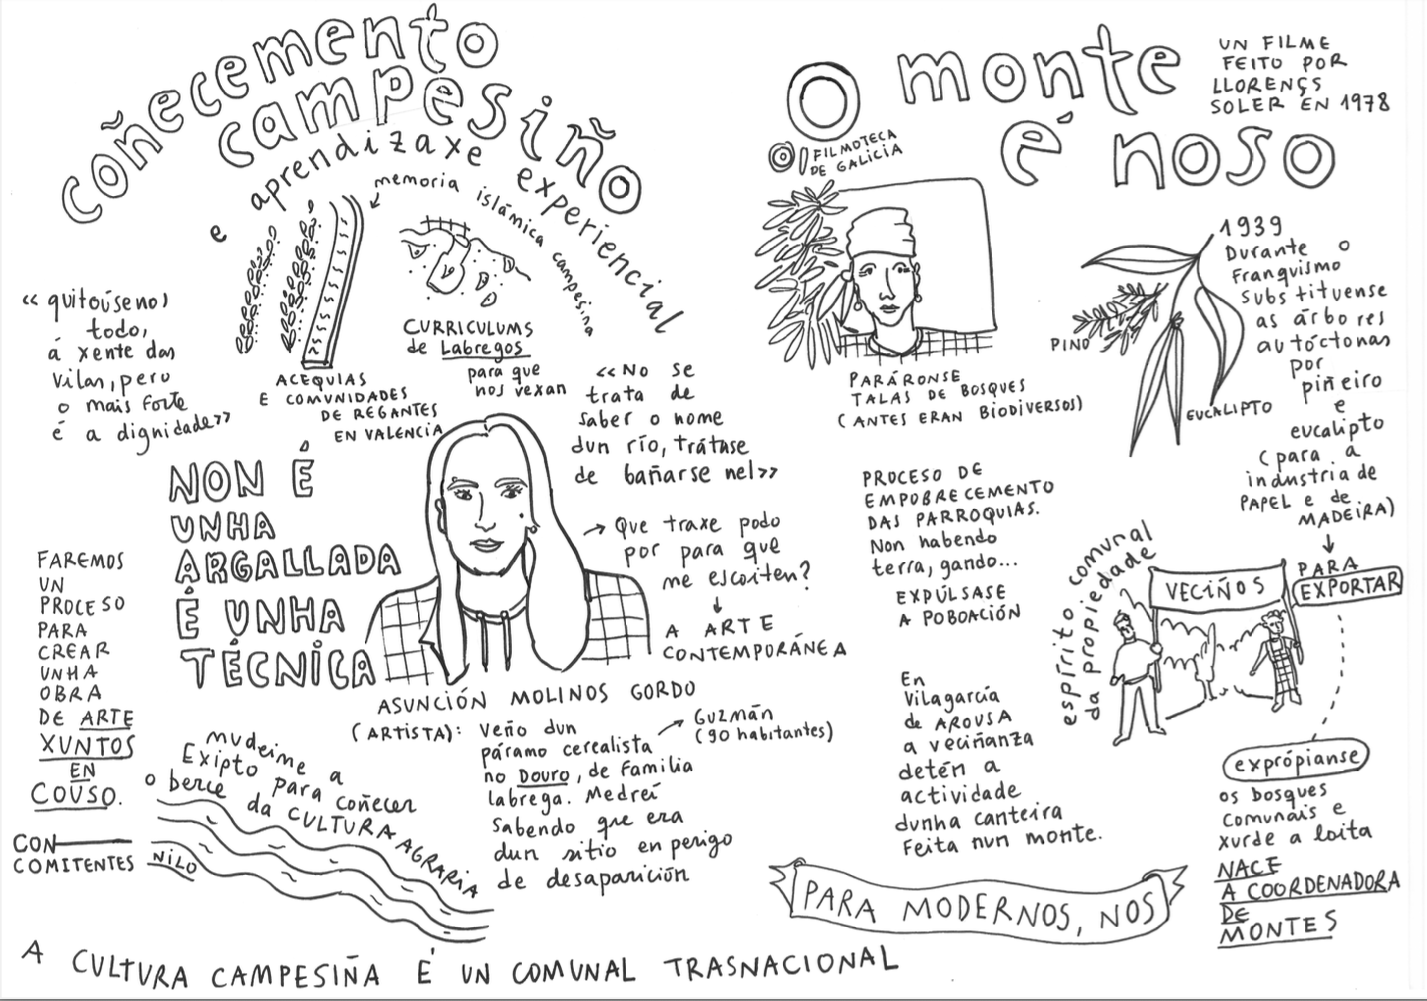 coñecemento
campesiño
e aprendizaxe experiencial
memoria islámica campesina
<< quitousenos
todo,
á xente das
vilas, pero
o mais forte
é a dignidade>>
ACEQUIAS
E COMUNIDADES
DE REGANTES
EN VALENCIA
CURRICULUMS
de Labregos
para que
nos vexan
<<No se
trata de
saber o nome
dun río, trátase
de bañarse nel>>
NON É
UNHA
ARGALLADA
É UNHA
TÉCNICA
Que traxe podo
por para que
me escoiten?
A ARTE
CONTEMPORÁNEA
FAREMOS
UN
PROCESO
PARA
CREAR
UNHA
OBRA
DE ARTE
XUNTOS
EN
COUSO.
CON
COMITENTES
ASUNCIÓN MOLINOS GORDO
(ARTISTA): Veño dun
páramo cerealista
no Douro, de familia
labrega. Medrei
sabendo que era
dun sitio en perigo
de desaparición
Guzmán
(90 habitantes)
mudeime a
Exipto para coñecer
o berce da CULTURA AGRARIA
NILO
A CULTURA CAMPESIÑA É UN COMUNAL TRASNACIONAL
O monte
é noso
UN FILME
FEITO POR
LLORENÇS
SOLER EN 1978
FILMOTECA
DE GALICIA
PARÁRONSE
TALAS DE BOSQUES
(ANTES ERAN BIODIVERSOS)
1939
Durante o
franquismo
substituense
as árbores
autóctonas
por
piñeiro
e
eucalipto
(para a
industria de
PAPEL e de
MADEIRA)
PARA
EXPORTAR
PINO
EUCALIPTO
PROCESO DE
EMPOBRECEMENTO
DAS PARROQUIAS.
Non habendo
terra, gando...
EXPÚLSASE
A POBOACIÓN
espírito comunal
da propiedade
VECIÑOS
En
Vilagarcía
de AROUSA
a veciñanza
detén a
actividade
dunha canteira
feita nun monte.
exprópianse
os bosques
comunais e
xurde a loita
NACE
A COORDENADORA
DE
MONTES
PARA MODERNOS, NOS